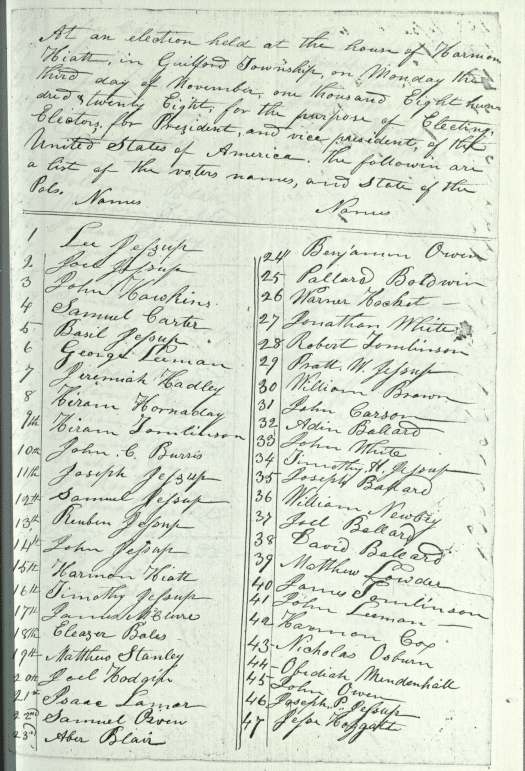 At an election held at the house of Harmon
Hiatt, in Guilford Township, on Monday the
third day of November, one thousand Eight hun
dred & twenty Eight, for the purpose of Electing,
Electors, for President, and vice president, of the
United States of America. the followin are
a list of the voters names, and State of the
Pols.
Names
1 Lee Jessup
2 Joel Jessup
3 John Hawkins
4 Samuel Carter
5 Basil Jessup
6 George Leeman
7 Jeremiah Hadley
8 Hiram Hornaday
9th Hiram Tomlinson
10th John C. Burris
11th Joseph Jessup
12th Samuel Jessup
13th Reuben Jessup
14th John Jessup
15th Harmon Hiatt
16th Timothy Jessup
17th James McClure
18th Eleazer Bales
19th Matthew Stanley
20th Joel Hodgin
21st Isaac Lamar
22nd Samuel Owen
23d Aber Blair
Names
24 Benjamin Owen
25 Pallard Boldwin
26 Warner Hocket
27 Jonathan White
28 Robert Tomlinson
29 Pratt. W. Jessup
30 William Brown
31 John Carson
32 Adin Ballard
33 John White
34 Timothy. H. Jessup
35 Joseph Ballard
36 William Newby
37 Joel Ballard
38 David Ballard
39 Matthew Lowder
40 James Tomlinson
41 John Leeman
42 Harmon Cox
43 Nicholas Osburn
44 Obidiah Mendenhall
45 John Owen
46 Joseph. P. Jessup
47 Jesse Hoggatt